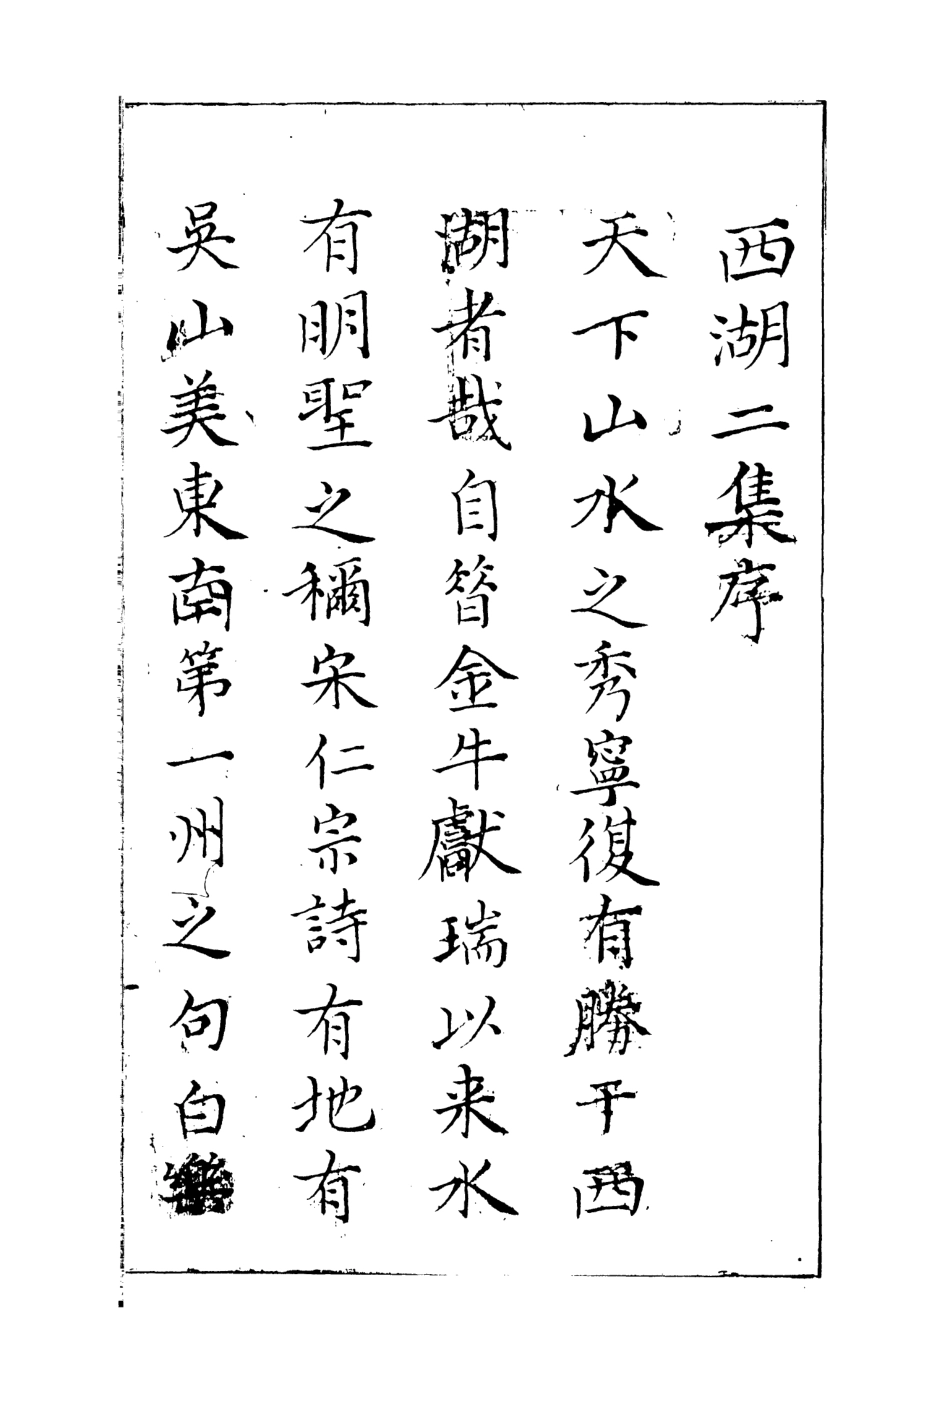 西湖二集序
天下山水之秀寧復有勝于西
湖者哉自昔金牛獻瑞以来水
有明聖之稱宋仁宗詩有地有
吳山美東南第一州之句白樂